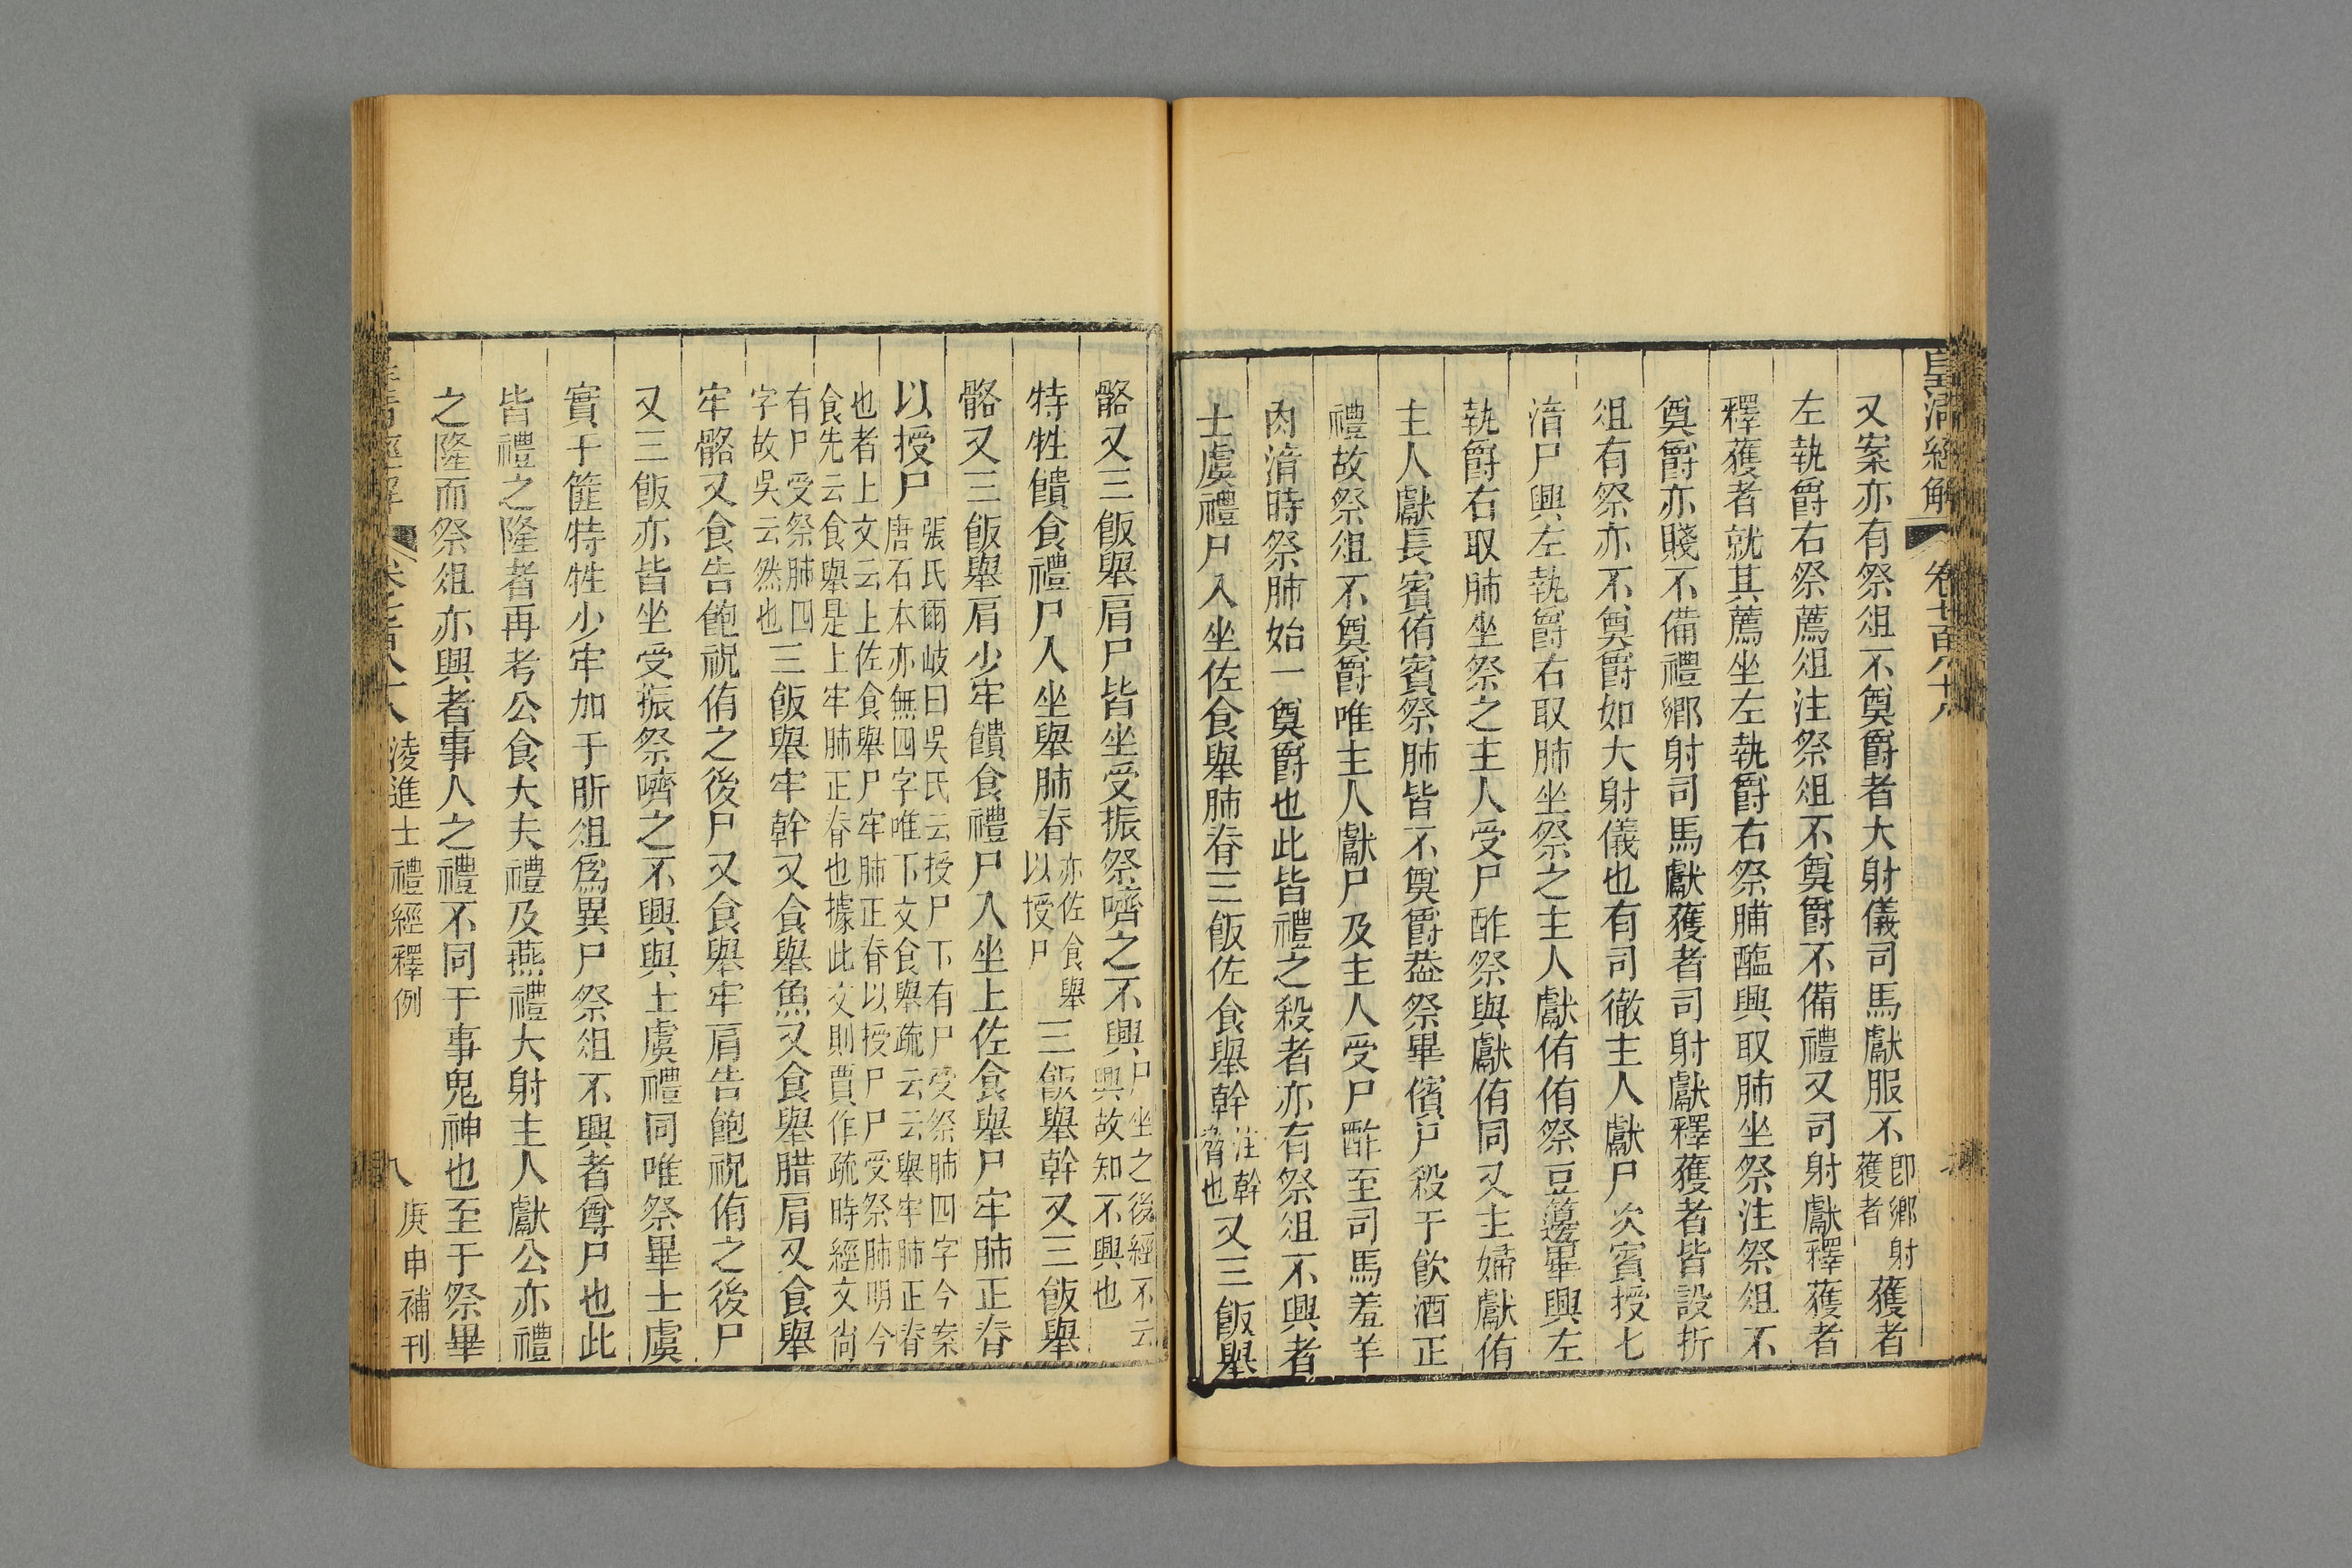 皇清經解 卷七百八十八
又案亦有祭俎不奠爵者大射儀司馬獻服不即鄉射獲者獲者
左執爵右祭薦俎注祭俎不奠爵不備禮又司射獻釋獲者
釋獲者就其薦坐左執爵右祭脯醢興取肺坐祭注祭俎不
奠爵亦賤不備禮鄉射司馬獻獲者司射獻釋獲者皆設折
俎有祭亦不奠爵如大射儀也有司徹主人獻尸次賓授七
湇尸興左執爵右取肺坐祭之主人獻侑侑祭豆籩畢興左
執爵右取肺坐祭之主人受尸酢祭與獻侑同又主婦獻侑
主人獻長賓侑賓祭肺皆不奠爵葢祭畢儐尸殺于飲酒正
禮故祭俎不奠爵唯主人獻尸及主人受尸酢至司馬羞羊
肉湇時祭肺始一奠爵也此皆禮之殺者亦有祭俎不興者
士虞禮尸入坐佐食舉肺脊三飯佐食舉幹注幹脅也又三飯舉
骼又三飯舉肩尸皆坐受振祭嚌之不興尸坐之後經不云興故知不興也
特牲饋食禮尸人坐舉肺脊亦佐食舉以授尸三飯舉幹又三飯舉
骼又三飯舉肩少牢饋食禮尸入坐上佐食舉尸牢肺正脊
以授尸張氏爾岐曰吳氏云授尸下有尸受祭肺四字今案唐石本亦無四字唯下文食舉疏云云舉牢肺正脊
也者上文云上佐食舉尸牢肺正脊以授尸尸受祭肺明今食先云食舉是上牢肺正脊也據此文則賈作疏時經文尙
有尸受祭肺四字故吳云然也三飯舉牢幹又食舉魚又食舉腊肩又食舉
牢骼又食告飽祝侑之後尸又食舉牢肩告飽祝侑之後尸
又三飯亦皆坐受振祭嚌之不興與士虞禮同唯祭畢士虞
實于篚特牲少牢加于肵俎爲異尸祭俎不興者尊尸也此
皆禮之隆者再考公食大夫禮及燕禮大射主人獻公亦禮
之隆而祭俎亦興者事人之禮不同于事鬼神也至于祭畢
淩進士禮經釋例 八 庚申補刊